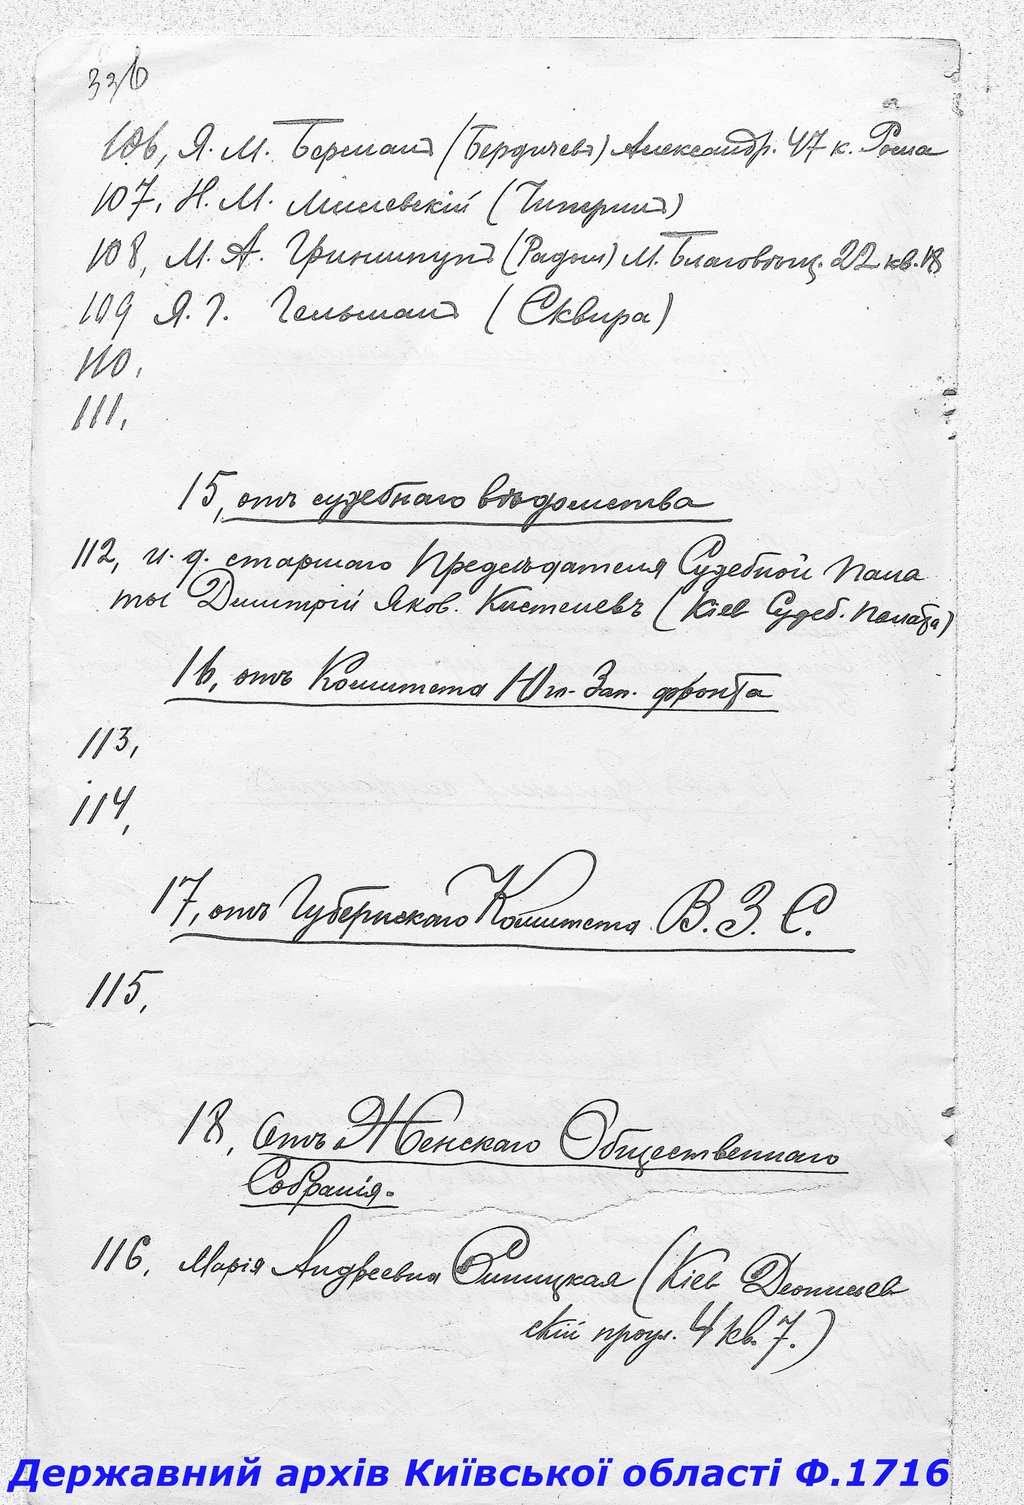 336
106, Я. М. Берманъ (Бердичевъ) Александр. 47 к.
107, Н. М. (
108, М. А. (Радом) М. Благовѣщ. 22 кв. 18
109 Я. Г. Гельманъ (Сквира)
110,
111,
15, отъ судебнаго вѣдомства
112, и. д. старшаго Предсѣдателя Судебной Пала
ты Дмитрій Яков. (Кіев Судеб. Палата)
16, отъ Комитета Юго-Зап. фронта
113,
114,
17, отъ Губернскаго Комитета В. З. С.
115,
18, Отъ Женскаго Общественнаго
Собранія.
116, Марія Андреевна (Кіев Дионисьев
скій проул. 4 кв. 7.)
Державний архів Київської області Ф.1716